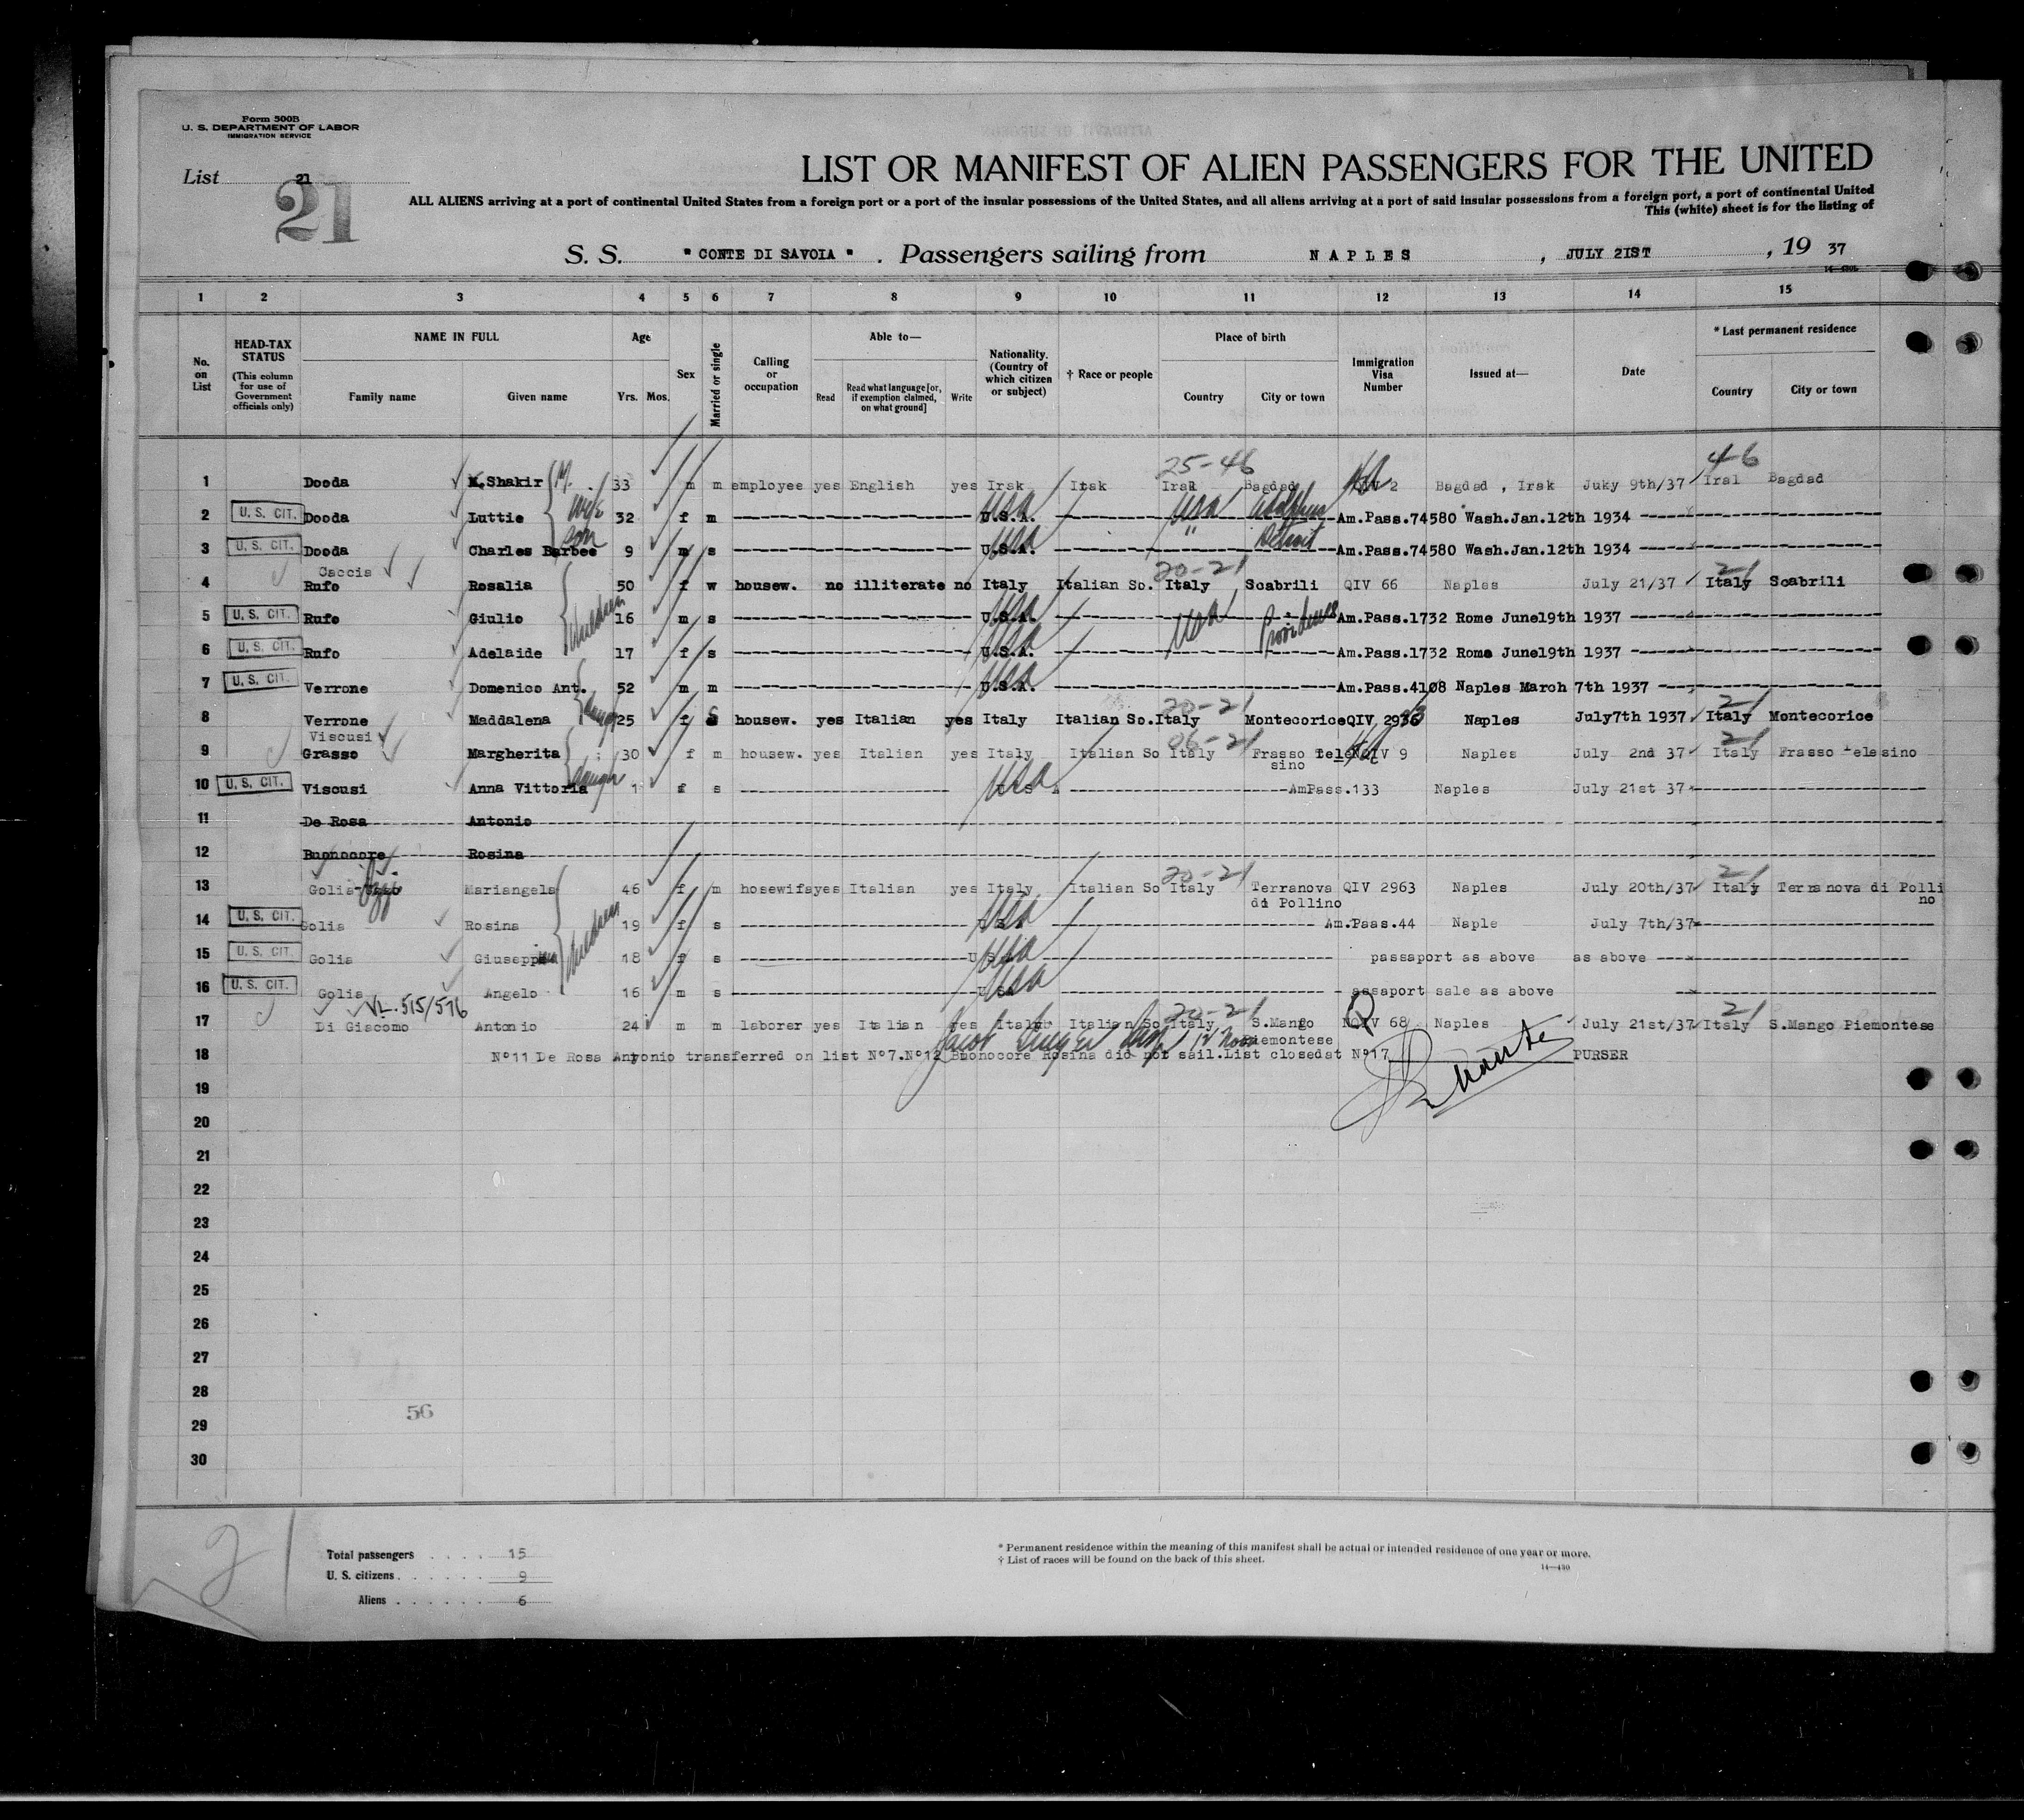 Form 500B
U. S. DEPARTMENT OF LABOR
IMMIGRATION SERVICE
List 21
21
LIST OR MANIFEST OF ALIEN PASSENGERS FOR THE UNITED
ALL ALIENS arriving at a port of continental United States from a foreign port or a port of the insular possessions of the United States, and all aliens arriving at a port of said insular possessions from a foreign port, a port of continental United
This (white) sheet is for the listing of
S. S. " CONTE DI SAVOIA " . Passengers sailing from NAPLES , JULY 21ST , 19 37
1 2 3 4 5 6 7 8 9 10 11 12 13 14 15
No. on List
HEAD-TAX STATUS (This column for use of Government officials only)
NAME IN FULL Family name Given name
Age Yrs. Mos.
Sex
Married or single
Calling or occupation
Able to— Read Read what language [or, if exemption claimed, on what ground] Write
Nationality. (Country of which citizen or subject)
† Race or people
Place of birth Country City or town
Immigration Visa Number
Issued at—
Date
* Last permanent residence Country City or town
25-46 4-6
1 Dooda M.Shakir M. 33 m m employee yes English yes Irak Irak Irak Bagdad QIV 2 Bagdad , Irak Juky 9th/37 Iral Bagdad
2 U. S. CIT. Dooda Luttie wife 32 f m U.S.A. USA USA Am.Pass.74580 Wash.Jan.12th 1934
3 U. S. CIT. Dooda Charles Barbee son 9 m s U.S.A. USA " Detroit Am.Pass.74580 Wash.Jan.12th 1934
Caccia 20-21 21
4 Rufo Rosalia 50 f w housew. no illiterate no Italy Italian So. Italy Scabrili QIV 66 Naples July 21/37 Italy Scabrili
5 U. S. CIT. Rufo Giulio children 16 m s U.S.A. USA USA Providence Am.Pass.1732 Rome June19th 1937
6 U. S. CIT. Rufo Adelaide 17 f s U.S.A. USA Am.Pass.1732 Rome June19th 1937
7 U. S. CIT. Verrone Domenico Ant. 52 m m U.S.A. USA Am.Pass.4108 Naples March 7th 1937
20-21 21
8 Verrone Maddalena 25 f S housew. yes Italian yes Italy Italian So.Italy Montecorice QIV Naples July7th 1937 Italy Montecorice
Viscusi 06-21 21
9 Grasso Margherita 30 f m housew. yes Italian yes Italy Italian So Italy Frasso Tele 9 Naples July 2nd 37 Italy Frasso Telesino
sino
10 U. S. CIT. Viscusi Anna Vittoria daugh 1 f s USA AmPass.133 Naples July 21st 37
11 De Rosa Antonio
12 Buonocore Rosina
20-21 21
13 Golia Mariangela 46 f m hosewife yes Italian yes Italy Italian So Italy Terranova QIV 2963 Naples July 20th/37 Italy Terranova di Polli
di Pollino no
14 U. S. CIT. Golia Rosina 19 f s USA Am.Pass.44 Naple July 7th/37
15 U. S. CIT. Golia Giuseppina children 18 f s USA passaport as above as above
16 U. S. CIT. Golia Angelo 16 m s USA assaport sale as above
VL.515/576 20-21 21
17 Di Giacomo Antonio 24 m m laborer yes Italian yes Italy Italian So Italy S.Mango NQIV 68 Naples July 21st/37 Italy S.Mango Piemontese
Piemontese
18 Nº11 De Rosa Antonio transferred on list Nº7.Nº12 Buonocore Rosina did not sail.List closedat Nº17 PURSER
19
20
21
22
23
24
25
26
27
28
56
29
30
21
Total passengers . . . . 15
U. S. citizens . . . . . . 9
Aliens . . . . . . 6
* Permanent residence within the meaning of this manifest shall be actual or intended residence of one year or more.
† List of races will be found on the back of this sheet.
14—430